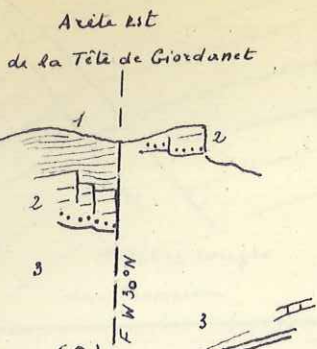 Arête Est
de la Tête de Giordanet
1
2
2
3
F W 30° N
3